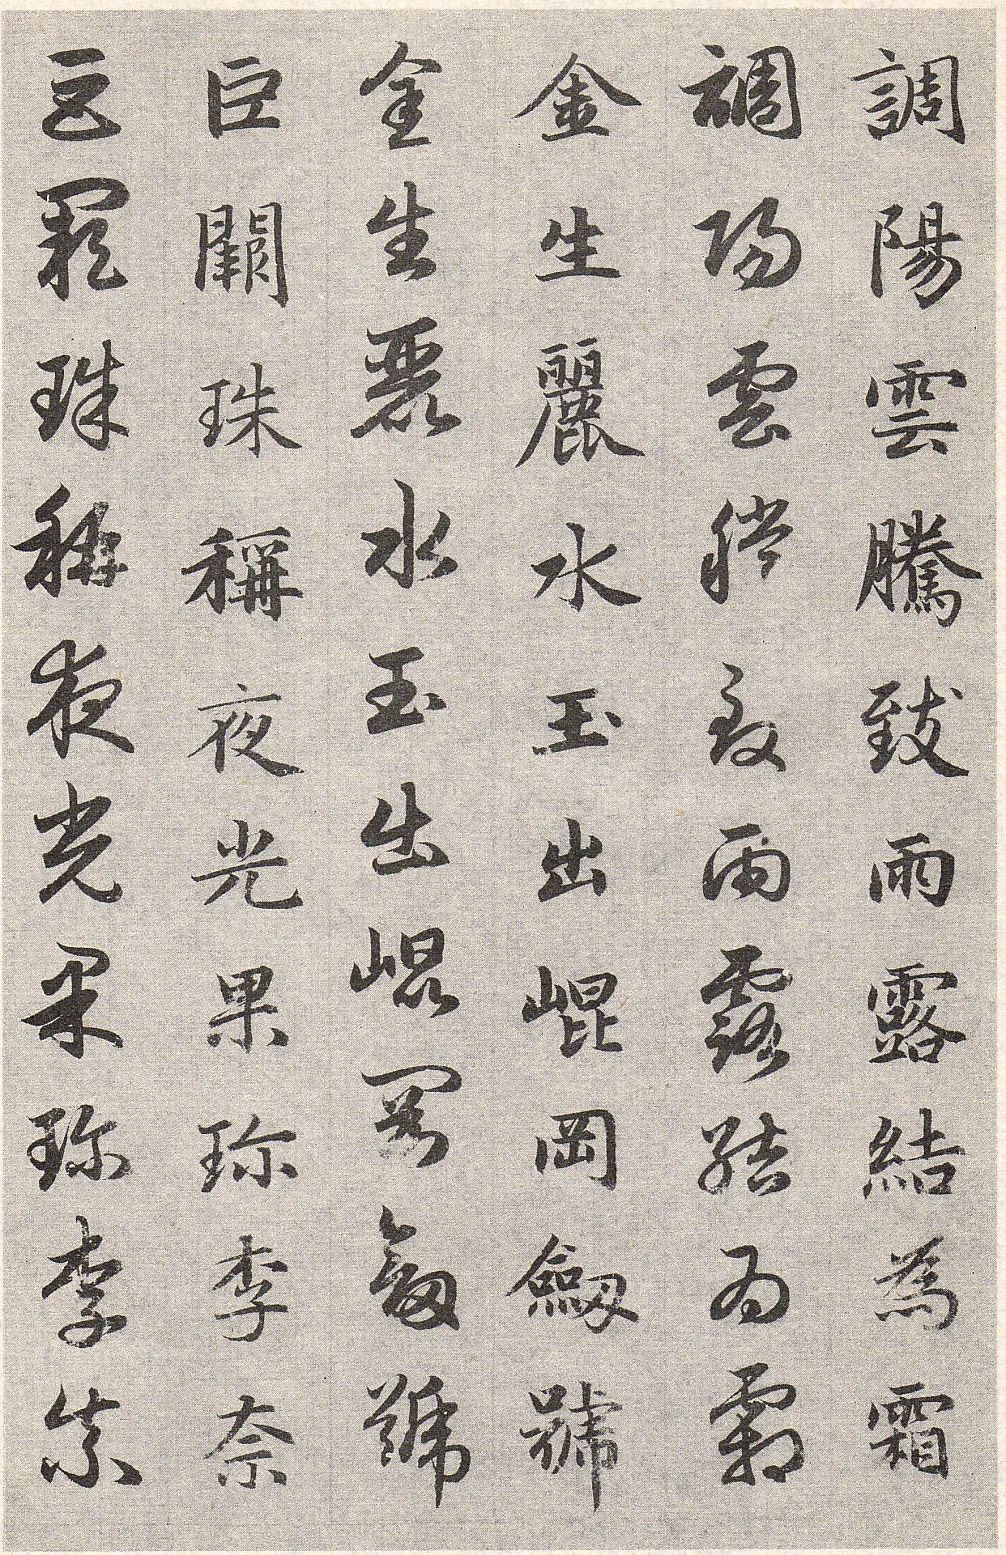 調陽雲騰致雨露結為霜
調陽雲騰致雨露結為霜
金生麗水玉出崐岡劔號
金生麗水玉出崐岡劔號
巨闕珠稱夜光果珎李柰
巨闕珠稱夜光果珎李柰